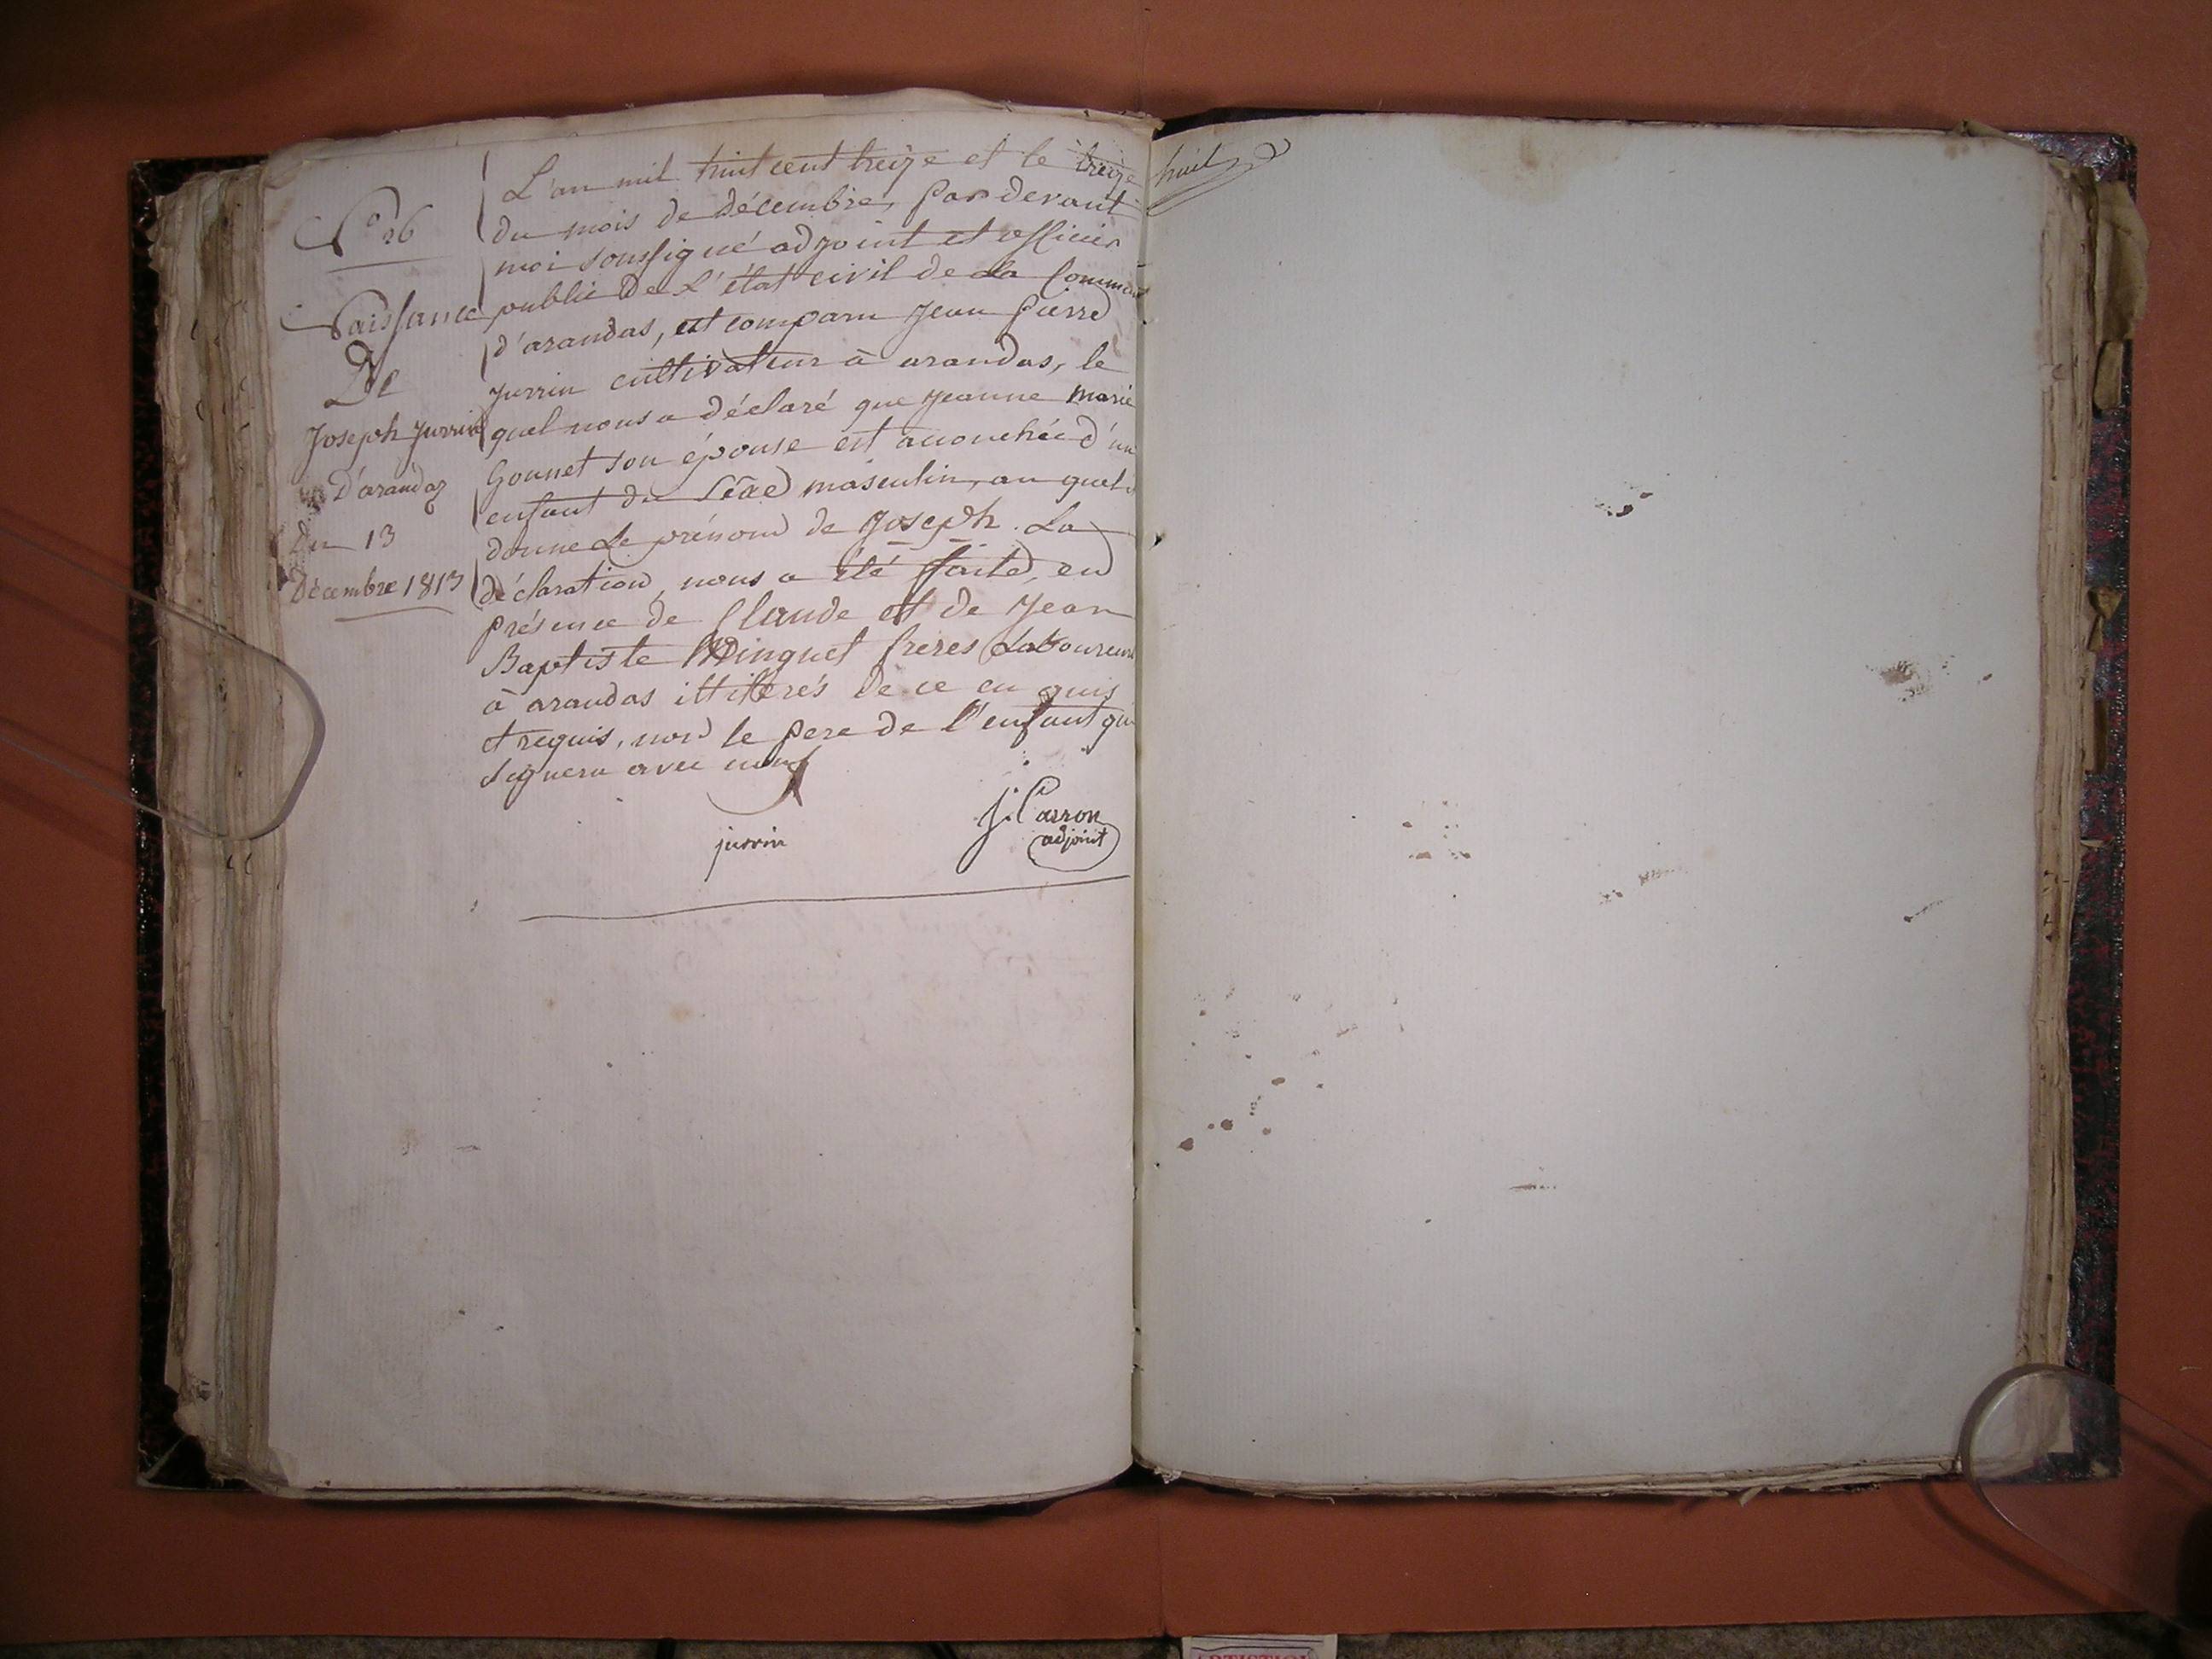 N° 26
Naissance
De
Joseph Jurrin
D'arandaz
Du 13
Décembre 1813
L'an mil huit cent treize et le treize
du mois de décembre, par devant
moi soussigné adjoint et officier
public de L'état civil de La Commune
d'arandas, est comparu Jean Pierre
Jurrin cultivateur à arandas, le
quel nous a déclaré que Jeanne Marie
Gonnet son épouse est accouchée d'un
enfant du Séxe masculin, au quel il
donne Le prénom de Joseph. La
déclaration nous a été faite en
présence de Claude et de Jean
Baptiste Minguet freres Laboureurs
à arandas illiterés de ce en quis
et requis, non le pere de l'enfant qui
signera avec nous
jurrin
J. Carron
adjoint
huit